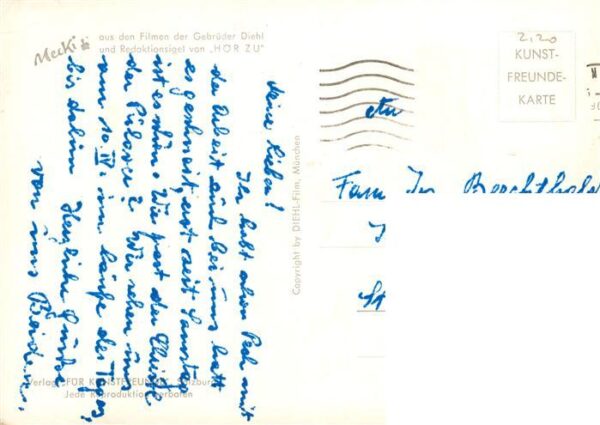 Mecki
aus den Filmen der Gebrüder Diehl
und Redaktionsigel von „HÖR ZU"
2,20
KUNST-
FREUNDE-
KARTE
An
Fam
St
Copyright by DIEHL-Film, München
Meine Lieben!
Ihr habt aber Pech mit
der Arbeit auch bei uns hat
es geschneit, erst seit Samstag
ist es schön. Wie passt der Christl
der Pulover? Wir sehen uns
am 10. IV. im laufe des Tages,
bis dahin Herzliche Grüsse
von uns Beiden.
Verlag „FÜR KUNSTFREUNDE", Salzburg
Jede Reproduktion verboten